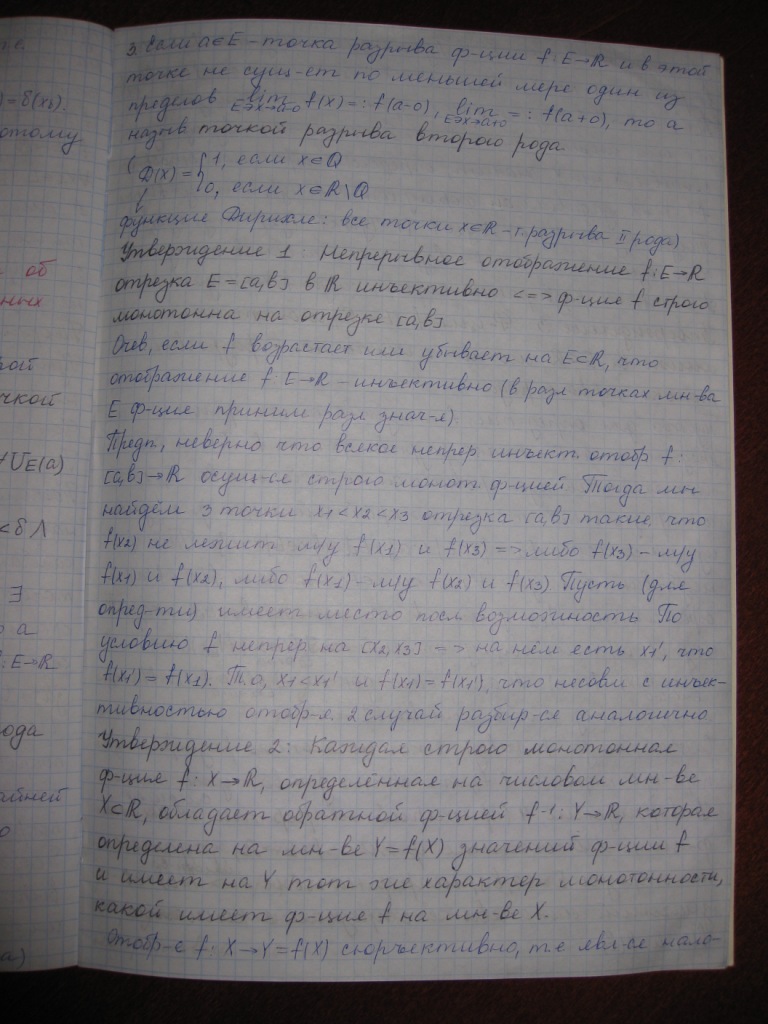 т.е.
3. Если a∈E – точка разрыва ф-ции f: E→R и в этой
точке не сущ-ет по меньшей мере один из
)=δ(x₁).
пределов lim f(x) =: f(a-0), lim =: f(a+0), то a
E∋x→a-0 E∋x→a+0
отому
назыв точкой разрыва второго рода
( D(x) = { 1, если x∈Q
0, если x∈R\Q
функция Дирихле: все точки x∈R – т. разрыва II рода)
Утверждение 1: Непрерывное отображение f: E→R
об
отрезка E=[a,b] в R инъективно <=> ф-ция f строго
нных
монотонна на отрезке [a,b]
Очев, если f возрастает или убывает на E⊂R, что
рой
отображение f: E→R – инъективно (в разл точках мн-ва
чкой
E ф-ция приним разл знач-я).
Предп., неверно что всякое непрер инъект. отобр f:
U_E(a)
[a,b]→R осущ-ся строго монот. ф-цией Тогда мы
найдём 3 точки x₁<x₂<x₃ отрезка [a,b] такие, что
<δ Λ
f(x₂) не лежит м/у f(x₁) и f(x₃) => либо f(x₃) – м/у
f(x₁) и f(x₂), либо f(x₁) – м/у f(x₂) и f(x₃) Пусть (для
∃
опред-ти) имеет место посл возможность По
a
условию f непрер на [x₂,x₃] => на нём есть x₁', что
: E→R
f(x₁')=f(x₁). Т.о, x₁<x₁' и f(x₁)=f(x₁'), что несовм с инъек-
тивностью отобр-я. 2 случай разбир-ся аналогично
рода
Утверждение 2: Каждая строго монотонная
ф-ция f: X→R, определённая на числовом мн-ве
айней
X⊂R, обладает обратной ф-цией f⁻¹: Y→R, которая
определена на мн-ве Y=f(X) значений ф-ции f
и имеет на Y тот же характер монотонности,
какой имеет ф-ция f на мн-ве X.
Отобр-е f: X→Y=f(X) сюръективно, т.е явл-ся нало-
a)